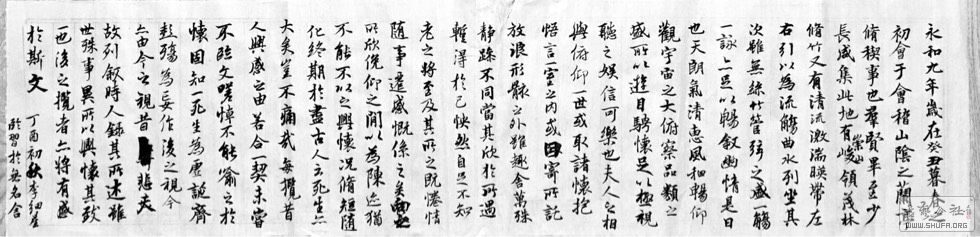 永和九年歲在癸丑暮春之
初會于會稽山陰之蘭亭
脩稧事也羣賢畢至少
長咸集此地有崇山峻領茂林
脩竹又有清流激湍暎帶左
右引以為流觴曲水列坐其
次雖無絲竹管弦之盛一觴
一詠亦足以暢敘幽情是日
也天朗氣清惠風和暢仰
觀宇宙之大俯察品類之
盛所以遊目騁懷足以極視
聽之娛信可樂也夫人之相
與俯仰一世或取諸懷抱
悟言一室之內或因寄所託
放浪形骸之外雖趣舍萬殊
靜躁不同當其欣於所遇
暫得於己怏然自足不知
老之將至及其所之既惓情
隨事遷感慨係之矣向之
所欣俛仰之間以為陳迹猶
不能不以之興懷況脩短隨
化終期於盡古人云死生亦
大矣豈不痛哉每攬昔
人興感之由若合一契未嘗
不臨文嗟悼不能喻之於
懷固知一死生為虛誕齊
彭殤為妄作後之視今
亦由今之視昔悲夫
故列敘時人錄其所述雖
世殊事異所以興懷其致
一也後之攬者亦將有感
於斯文
丁酉初秋李
WWW.SHUFA.ORG